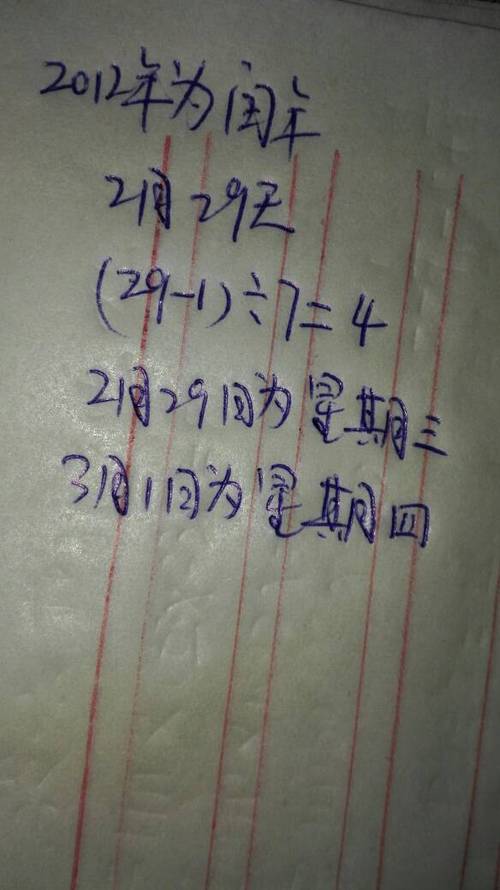 2012年为闰年
2月29天
(29-1)÷7=4
2月29日为星期三
3月1日为星期四